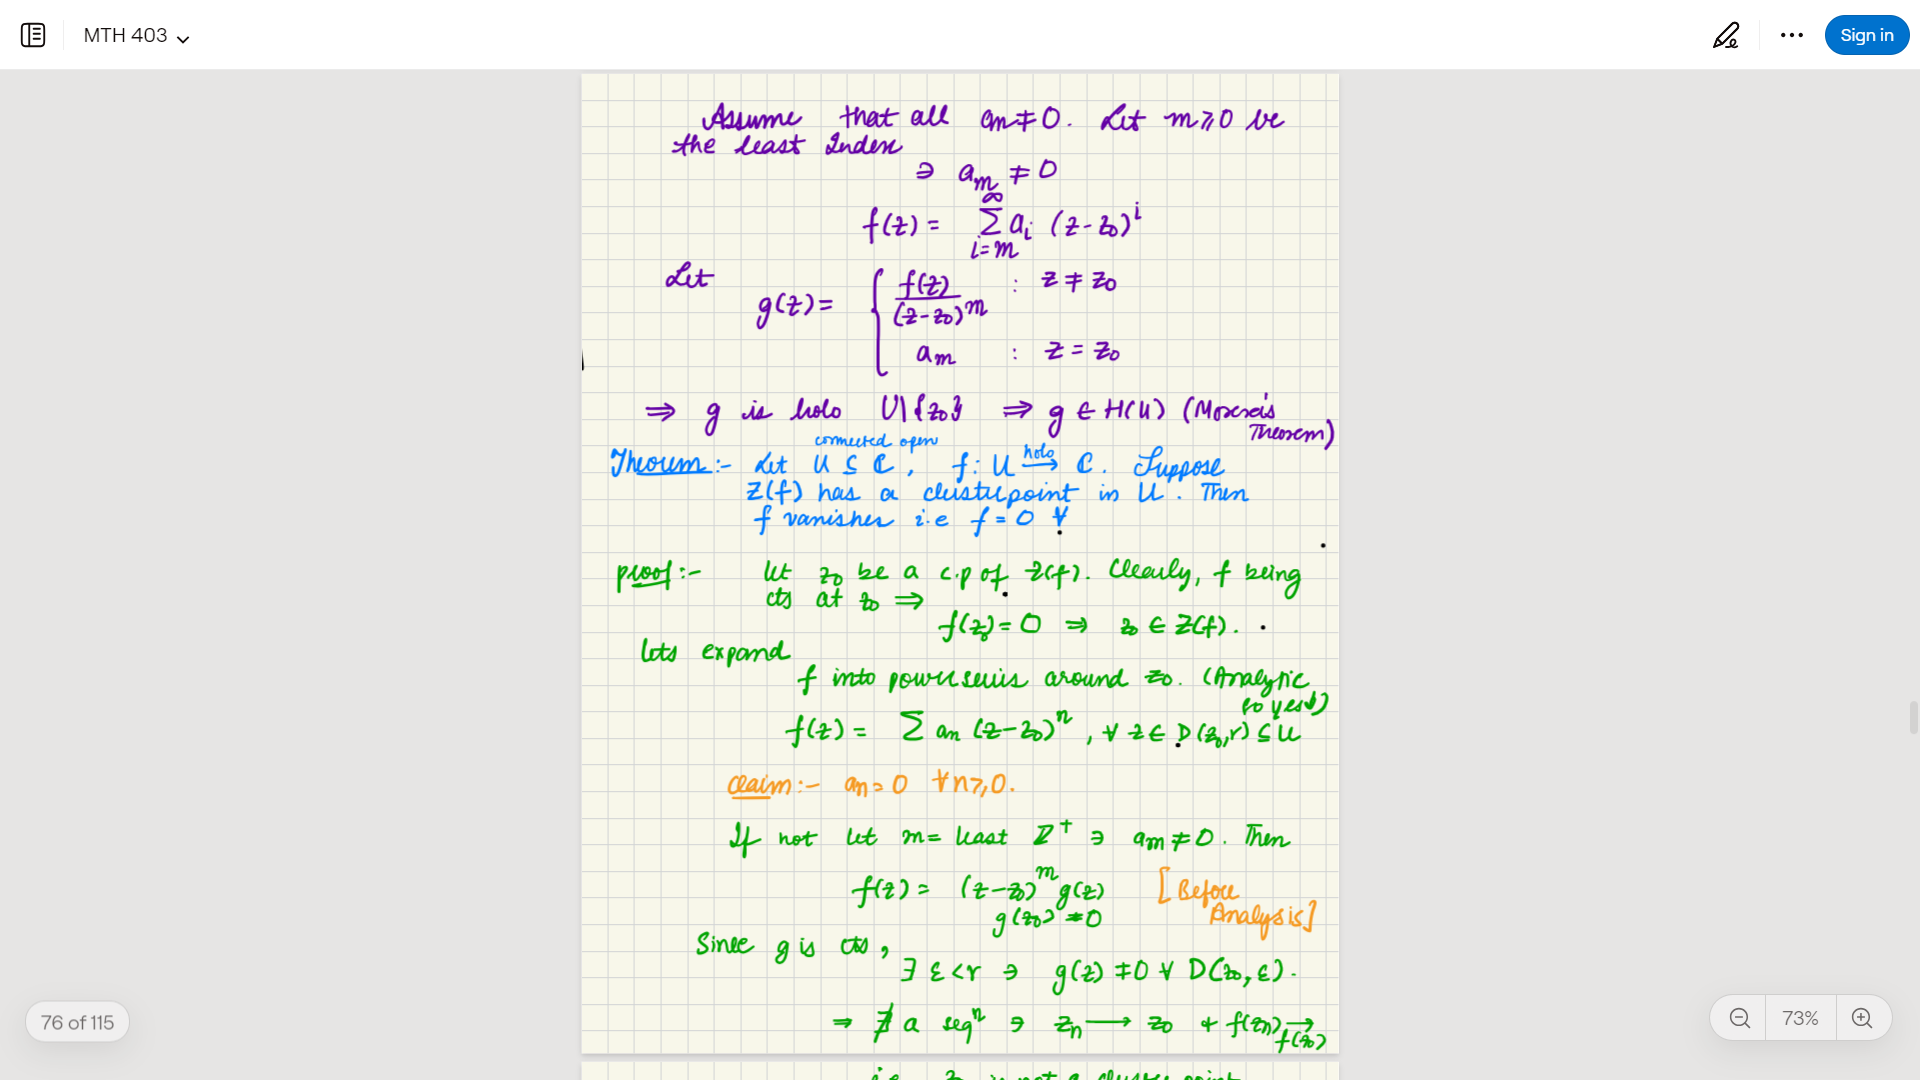 MTH 403
Sign in
Assume that all am ≠ 0. Let m ≥ 0 be
the least Index
∋ am ≠ 0
f(z) = ∞∑i=m ai (z-z0)^i
Let
g(z) = { f(z)/(z-z0)^m : z ≠ z0
am : z = z0
⇒ g is holo U\{z0} ⇒ g ∈ H(U) (Morera's
Theorem)
connected open
Theorem:- Let U ⊆ ℂ, f: U holo→ ℂ. Suppose
Z(f) has a cluster point in U. Then
f vanishes i.e f = 0 ∀
proof:- let z0 be a c.p of Z(f). Clearly, f being
cts at z0 ⇒
f(z0) = 0 ⇒ z0 ∈ Z(f).
lets expand
f into power series around z0. (Analytic
so yes!)
f(z) = ∑ an (z-z0)^n, ∀ z ∈ D(z0,r) ⊆ U
claim:- an = 0 ∀ n ≥ 0.
If not let m = least ℤ^+ ∋ am ≠ 0. Then
f(z) = (z-z0)^m g(z) [Before
g(z0) ≠ 0 Analysis]
Since g is cts,
∃ ε < r ∋ g(z) ≠ 0 ∀ D(z0, ε).
⇒ ∄ a seq^n ∋ zn → z0 + f(zn) →
f(z0)
i.e z0 is not a cluster point
76 of 115
73%